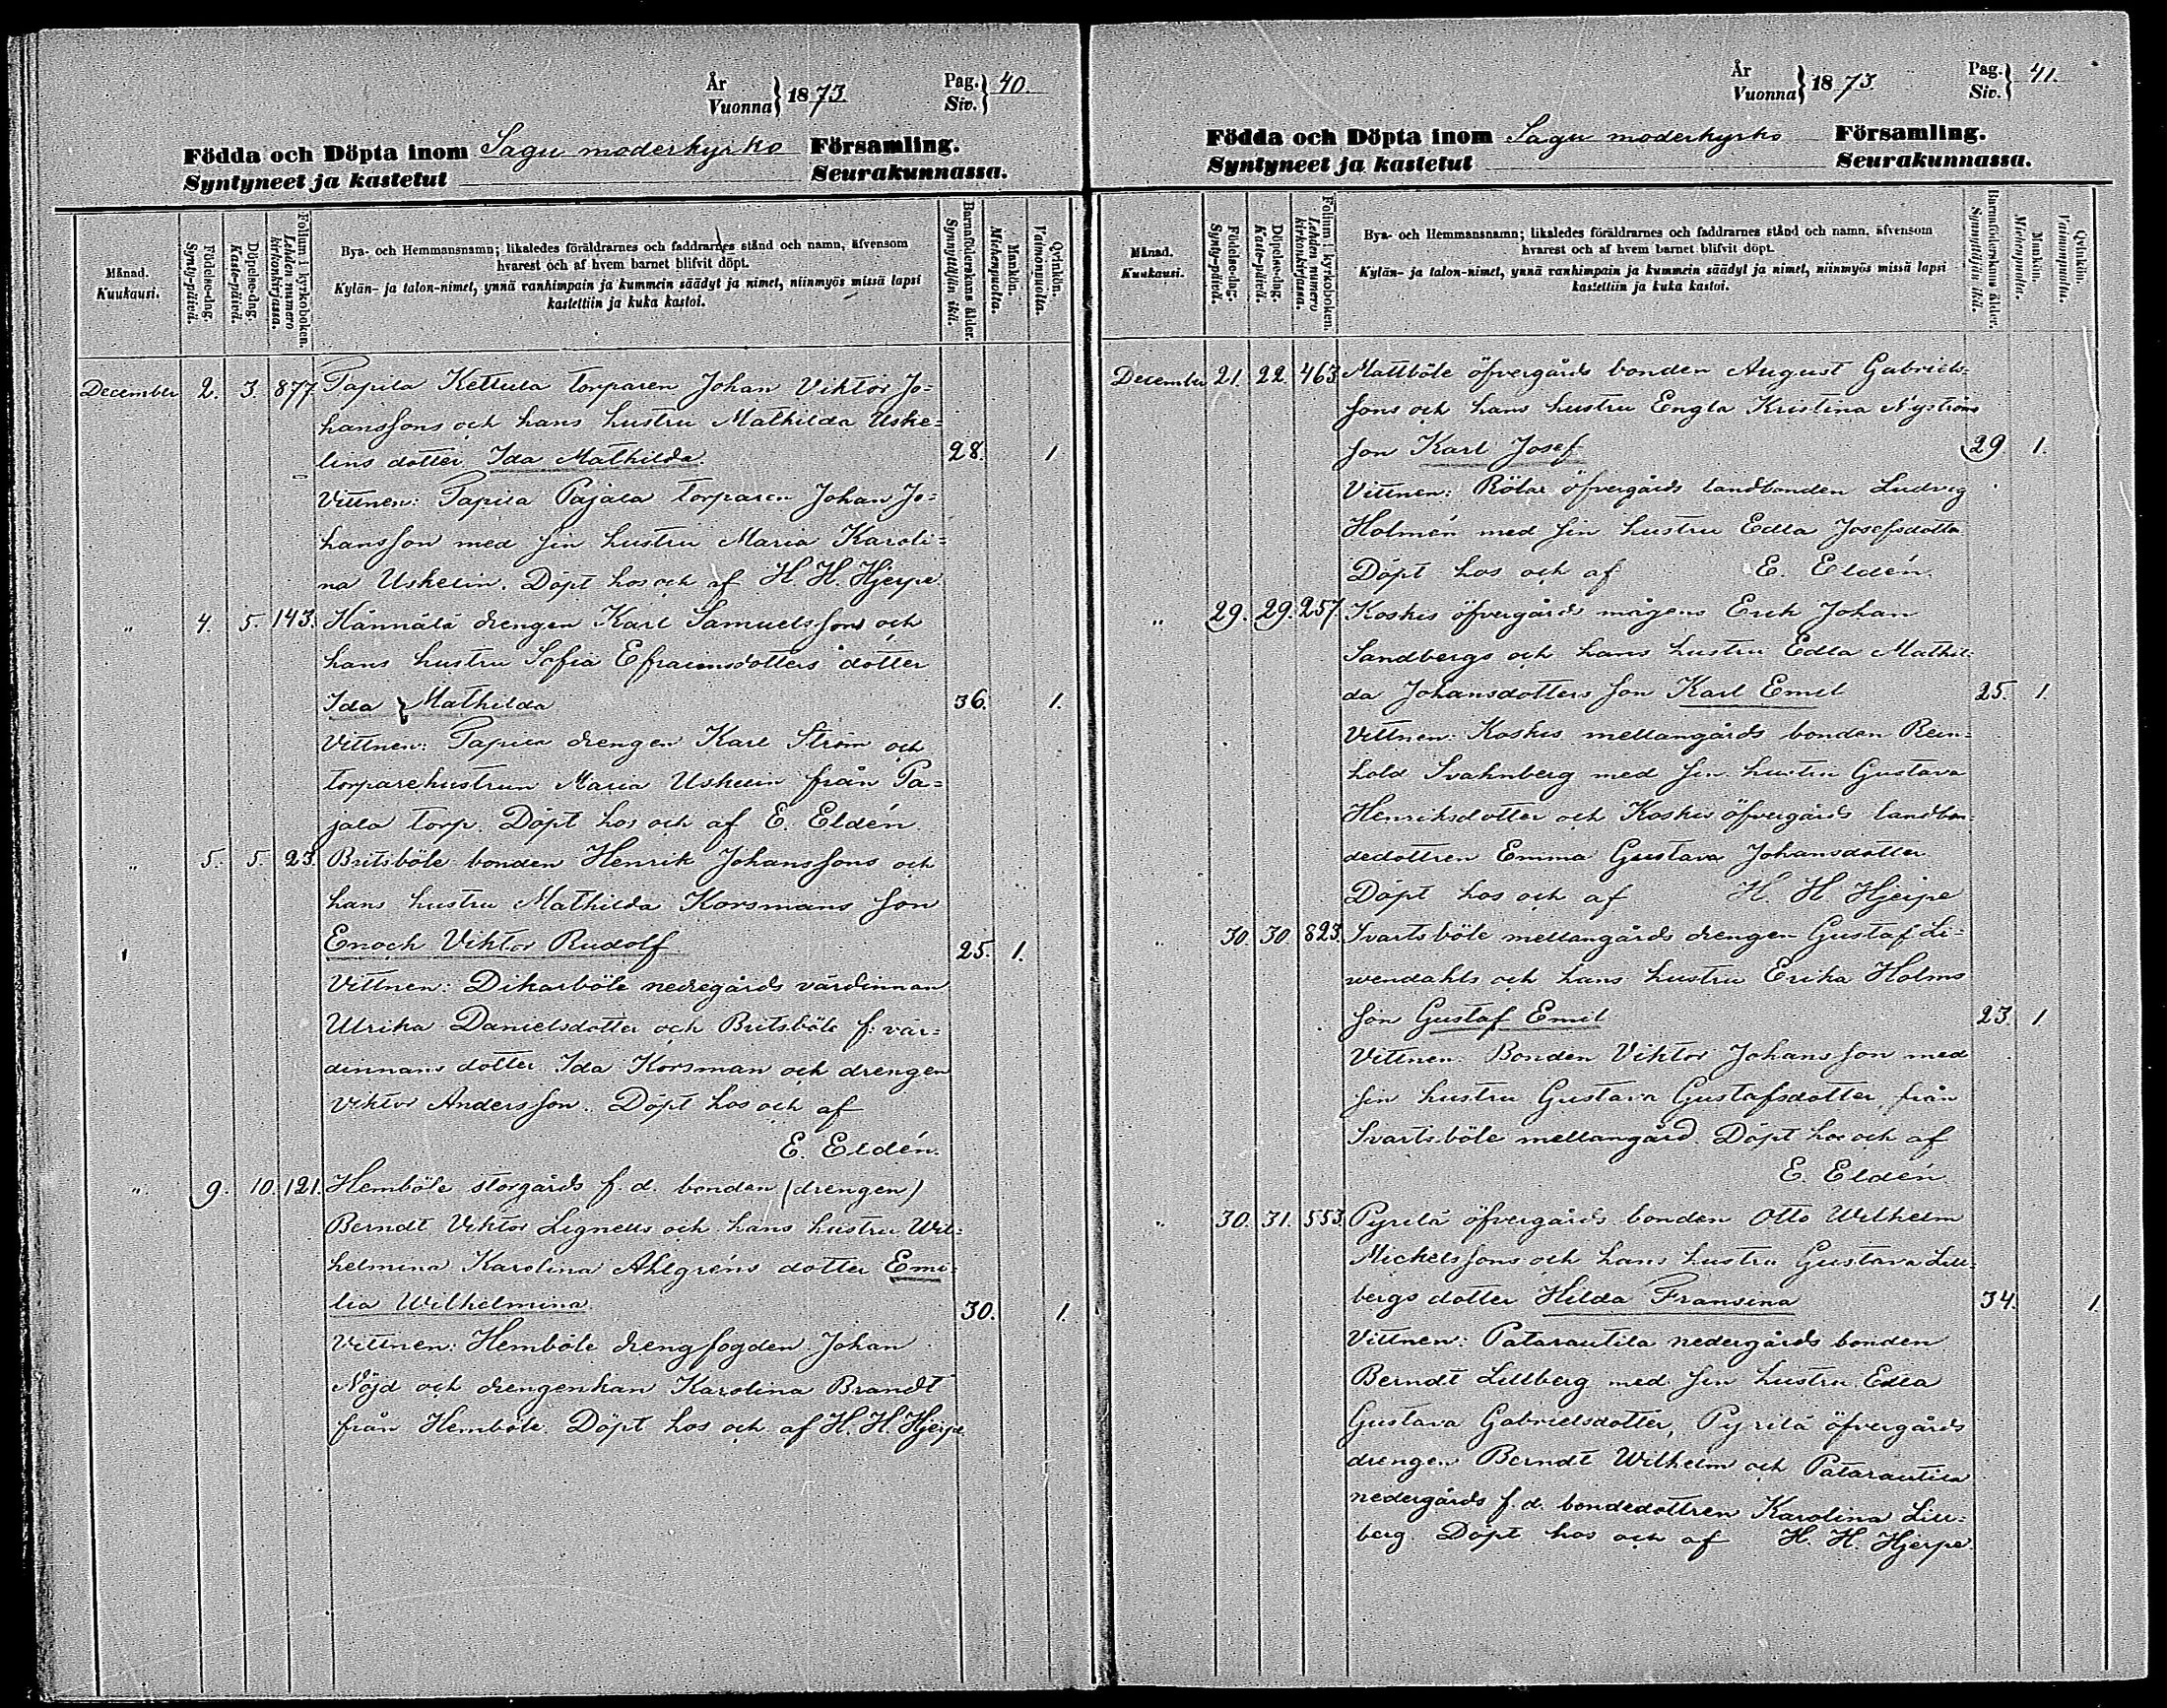 År
Vuonna } 1873.
Pag.
Siv. } 40.
Födda och Döpta inom Sagu moderkyrko Församling.
Syntyneet ja kastetut Seurakunnassa.
Månad.
Kuukausi.
Födelse-dag.
Synty-päivä.
Döpelse-dag.
Kaste-päivä.
Folium i kyrkoboken.
Lehden numero kirkonkirjassa.
Bya- och Hemmansnamn; likaledes föräldrarnes och faddrarnes stånd och namn, äfvensom
hvarest och af hvem barnet blifvit döpt.
Kylän- ja talon-nimet, ynnä vanhimpain ja kummein säädyt ja nimet, niinmyös missä lapsi
kastettiin ja kuka kastoi.
Barnaföderskans ålder.
Synnyttäjän ikä.
Mankön.
Miehenpuolta.
Qvinkön.
Vaimonpuolta.
December 2. 3. 877. Papila Kettula torparen Johan Viktor Jo=
hanssons och hans hustru Mathilda Uske=
lins dotter Ida Mathilda. 28. 1
Vittnen: Papila Pajala torparen Johan Jo=
hansson med sin hustru Maria Karoli=
na Uskelin. Döpt hos och af H. H. Hjerpe.
" 4. 5. 143. Hännälä drengen Karl Samuelssons och
hans hustru Sofia Efraimsdotters dotter
Ida Mathilda 36. 1.
Vittnen: Papila drengen Karl Ström och
torparehustrun Maria Uskelin från Pa=
jala torp. Döpt hos och af E. Eldén.
" 5. 5. 23. Britsböle bonden Henrik Johanssons och
hans hustru Mathilda Korsmans son
Enoch Viktor Rudolf 25. 1.
Vittnen: Dikarböle nedregårds värdinnan
Ulrika Danielsdotter och Britsböle f: vär=
dinnans dotter Ida Korsman och drengen
Viktor Andersson. Döpt hos och af
E. Eldén.
" 9. 10. 121. Hemböle storgårds f. d. bonden (drengen)
Berndt Viktor Lignells och hans hustru Wil=
helmina Karolina Ahlgréns dotter Emi=
lia Wilhelmina. 30. 1.
Vittnen: Hemböle drengfogden Johan
Nöjd och drengenkan Karolina Brandt
från Hemböle. Döpt hos och af H. H. Hjerpe.
År
Vuonna } 1873.
Pag.
Siv. } 41.
Födda och Döpta inom Sagu moderkyrko Församling.
Syntyneet ja kastetut Seurakunnassa.
Månad.
Kuukausi.
Födelse-dag.
Synty-päivä.
Döpelse-dag.
Kaste-päivä.
Folium i kyrkoboken.
Lehden numero kirkonkirjassa.
Bya- och Hemmansnamn; likaledes föräldrarnes och faddrarnes stånd och namn, äfvensom
hvarest och af hvem barnet blifvit döpt.
Kylän- ja talon-nimet, ynnä vanhimpain ja kummein säädyt ja nimet, niinmyös missä lapsi
kastettiin ja kuka kastoi.
Barnaföderskans ålder.
Synnyttäjän ikä.
Mankön.
Miehenpuolta.
Qvinkön.
Vaimonpuolta.
December 21. 22. 463 Mattböle öfvergårds bonden August Gabriels=
sons och hans hustru Engla Kristina Nyströms
son Karl Josef 29. 1.
Vittnen: Rölax öfvergårds landbonden Ludvig
Holmén med sin hustru Edla Josefsdotter.
Döpt hos och af E. Eldén.
" 29. 29. 257. Koskis öfvergårds mågens Erik Johan
Sandbergs och hans hustru Edla Mathil=
da Johansdotters son Karl Emil 25. 1.
Vittnen: Koskis mellangårds bonden Rein=
hold Svahnberg med sin hustru Gustava
Henriksdotter och Koskis öfvergårds landbon=
dedottren Emma Gustava Johansdotter.
Döpt hos och af H. H. Hjerpe
" 30. 30 823. Svartsböle mellangårds drengen Gustaf Li=
wendahls och hans hustru Erika Holms
son Gustaf Emil 23. 1.
Vittnen. Bonden Viktor Johansson med
sin hustru Gustava Gustafsdotter från
Svartsböle mellangård. Döpt hos och af
E. Eldén.
" 30. 31. 553. Pyrilä öfvergårds bonden Otto Wilhelm
Mickelssons och hans hustru Gustava Lill=
bergs dotter Hilda Fransina 34. 1
Vittnen: Patarautila nedergårds bonden
Berndt Lillberg med sin hustru Edla
Gustava Gabrielsdotter, Pyrilä öfvergårds
drengen Berndt Wilhelm och Patarautila
nedergårds f. d. bondedottren Karolina Lill=
berg. Döpt hos och af H. H. Hjerpe.